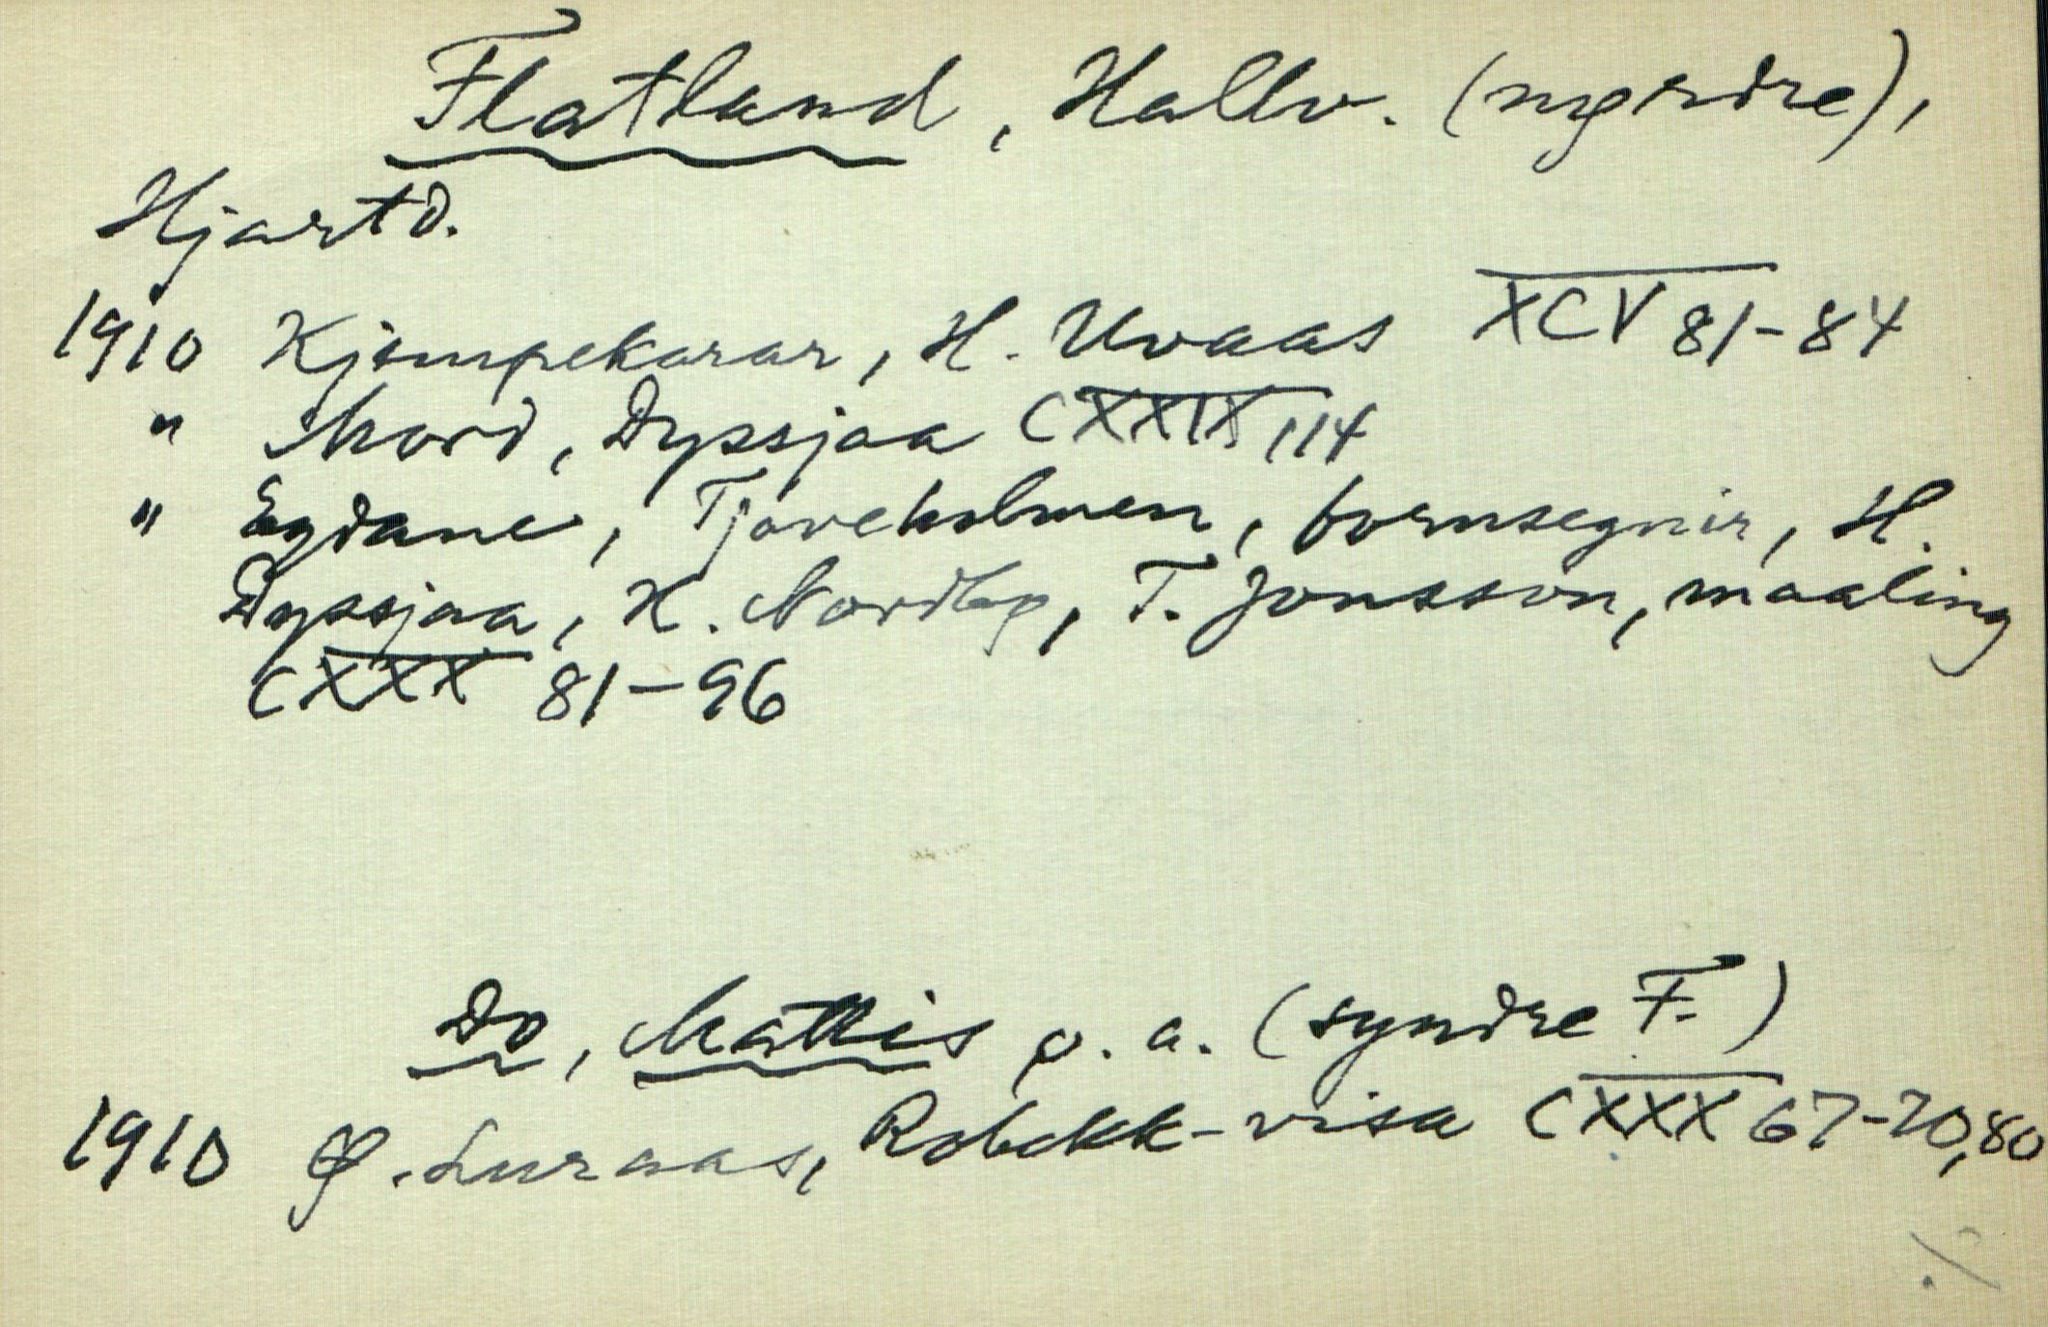 Flatland, Hallv. (nyrdre),
Hjartd.
1910 Kjempekarar, H. Uvaas XCV 81-84
" Mord, Dyssjaa CXXIX 114
" Egdane, Tjoveholmen, fornsegnir, H.
Dyssjaa, K. T. Jonsson, maaling
CXXX 81-96
Do, Mattis o. a. (syndre F.)
1910 Ø. Luraas, Robekk-visa CXXX 67-70,80